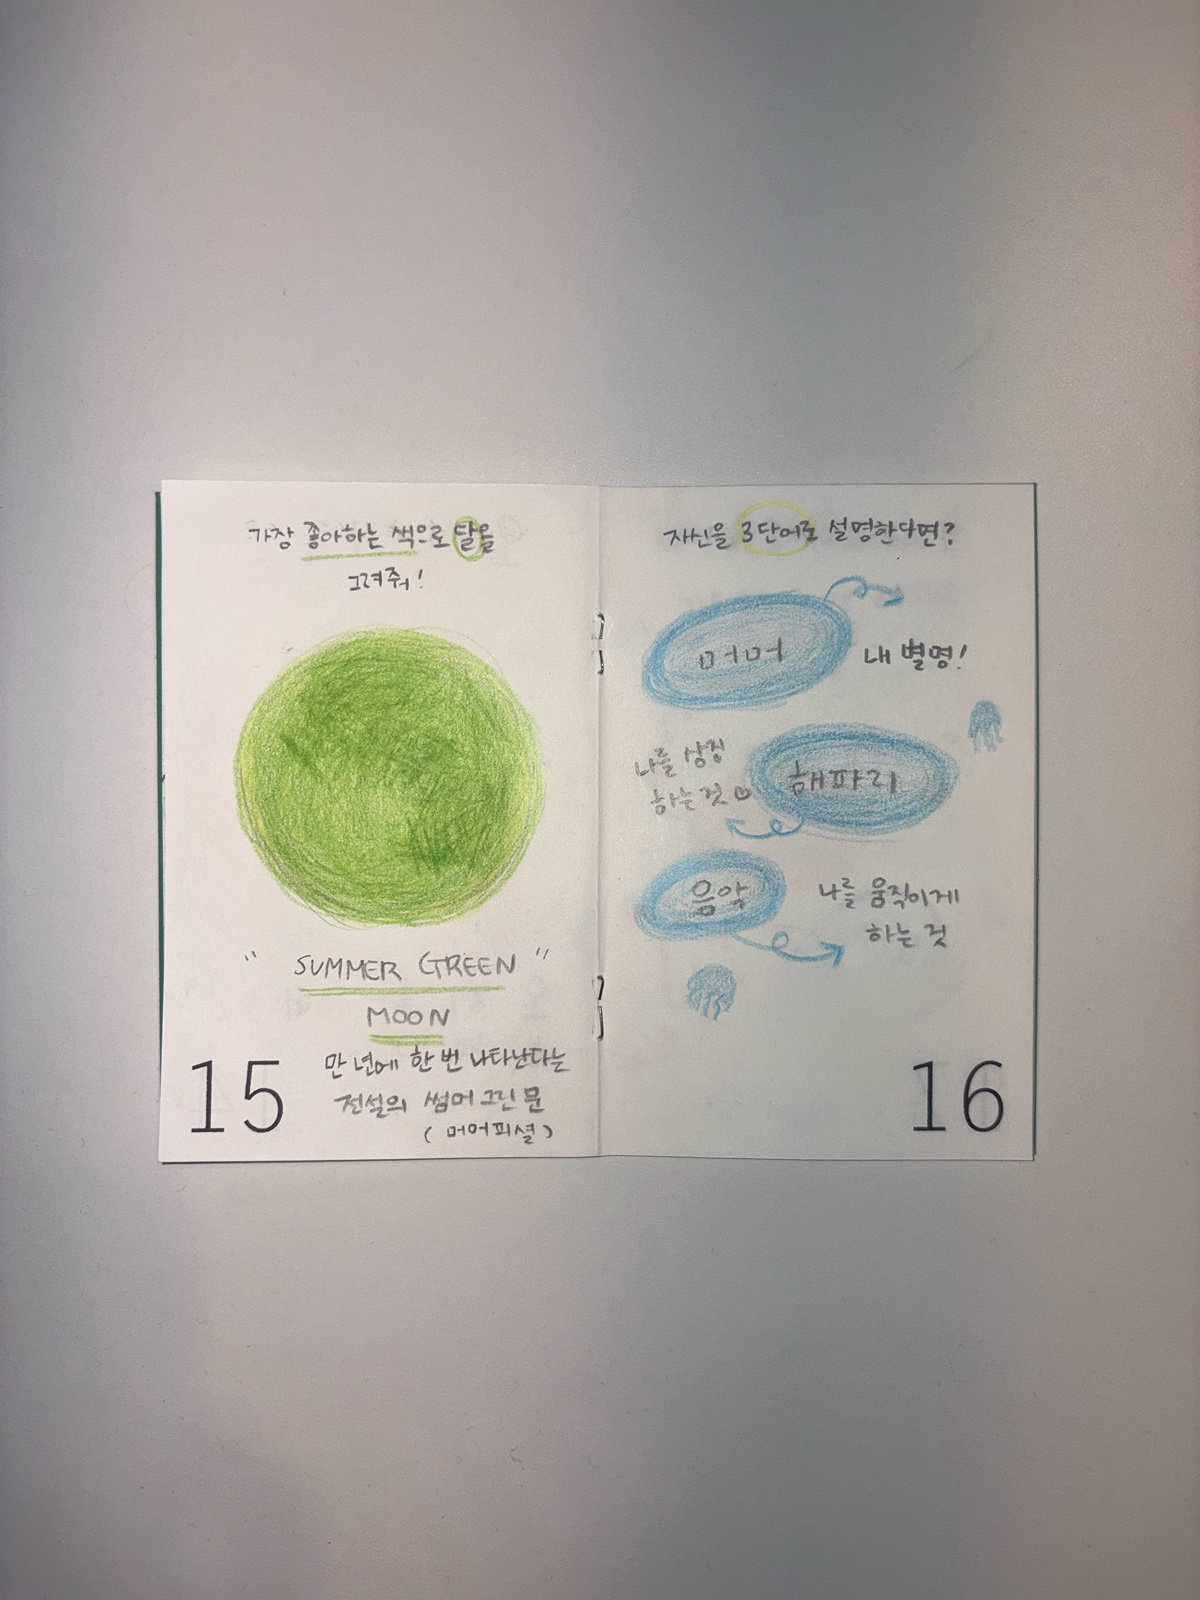 가장 좋아하는 색으로 달을
그려줘!
" SUMMER GREEN "
MOON
만 년에 한 번 나타난다는
전설의 썸머 그린 문
(머어피셜)
15
자신을 3단어로 설명한다면?
머어
내 별명!
나를 상징
하는 것
해파리
음악
나를 움직이게
하는 것
16